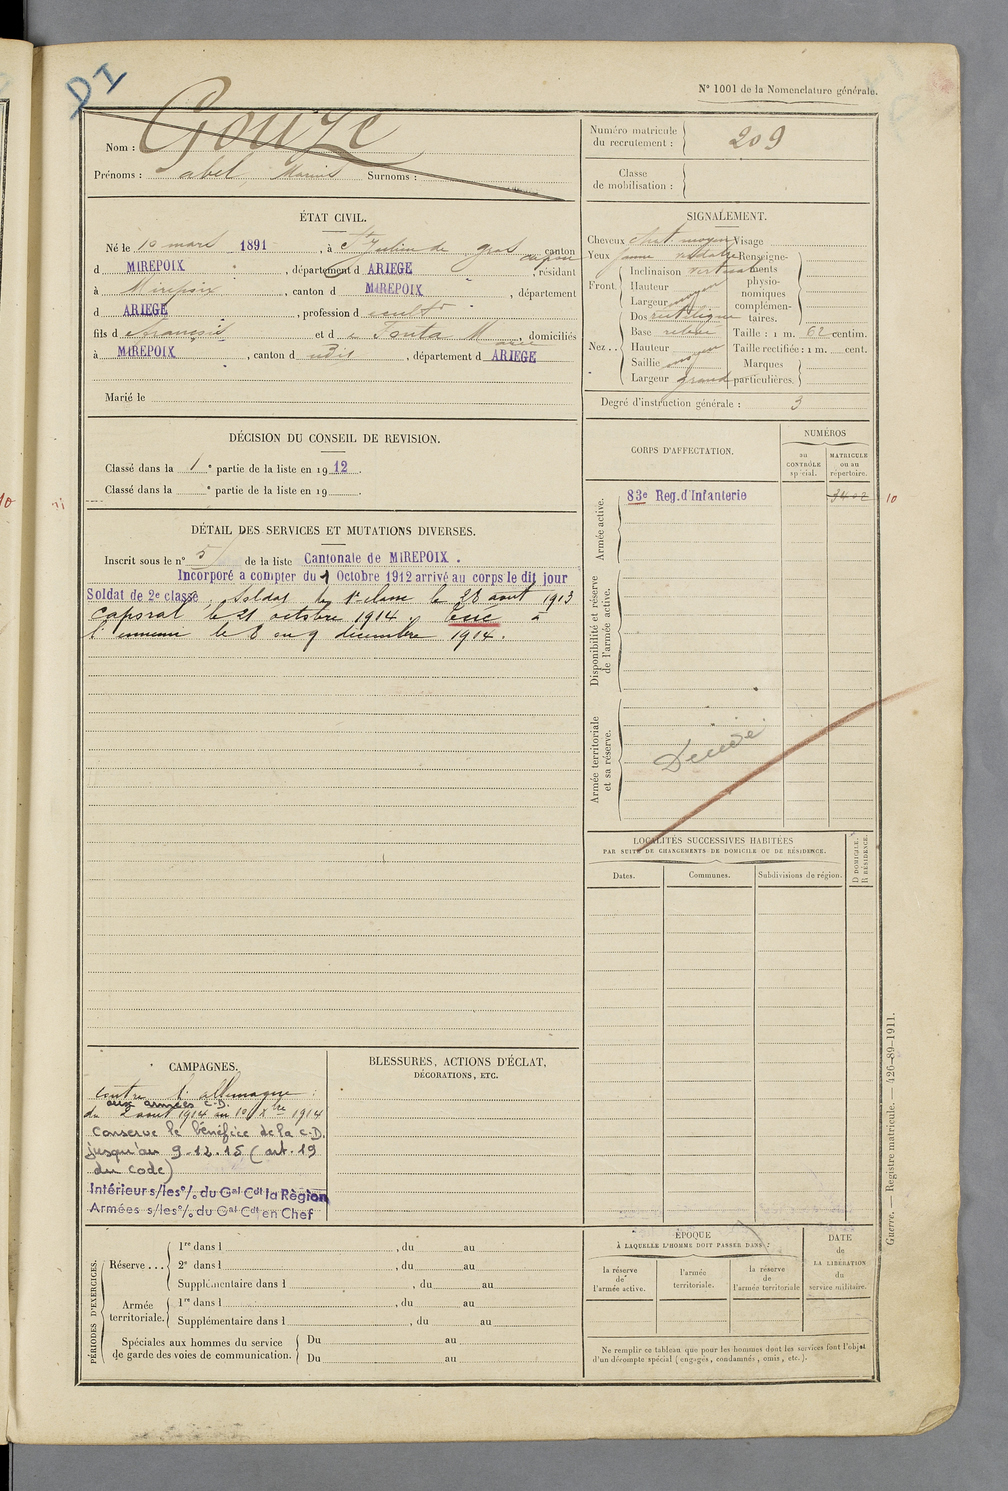 DI
N° 1001 de la Nomenclature générale.
Nom : Gouze
Prénoms : Abel, Marius Surnoms :
Numéro matricule du recrutement : 209
Classe de mobilisation :
ÉTAT CIVIL.
Né le 10 mars 1891, à St Julien de gras capou canton
d MIREPOIX, département d ARIEGE, résidant
à Mirepoix, canton d MIREPOIX, département
d ARIEGE, profession d cultr
fils d François et d e Touta Marie, domiciliés
à MIREPOIX, canton d udit, département d ARIEGE
Marié le
SIGNALEMENT.
Cheveux chat. moyen Visage
Yeux jaune verdâtre Renseignements physionomiques complémentaires.
Front. Inclinaison verticale
Hauteur moyen
Largeur
Nez .. Dos rectiligne
Base relevé
Hauteur moyen
Saillie moyen
Largeur grand
Taille : 1 m. 62 centim.
Taille rectifiée : 1 m. cent.
Marques particulières.
Degré d'instruction générale : 3
DÉCISION DU CONSEIL DE REVISION.
Classé dans la 1e partie de la liste en 1912.
Classé dans la e partie de la liste en 19 .
CORPS D'AFFECTATION.
NUMÉROS
au CONTRÔLE spécial.
MATRICULE ou au répertoire.
Armée active.
83e Reg. d'Infanterie 3402
10
Disponibilité et réserve de l'armée active.
Armée territoriale et sa réserve.
Décédé
DÉTAIL DES SERVICES ET MUTATIONS DIVERSES.
Inscrit sous le n° 5 de la liste Cantonale de MIREPOIX.
Incorporé a compter du 1 Octobre 1912 arrivé au corps le dit jour
Soldat de 2e classe, Soldat de 1e classe le 28 aout 1913
caporal le 21 octobre 1914, Tué à
l'ennemi le 8 ou 9 décembre 1914.
LOCALITÉS SUCCESSIVES HABITÉES
PAR SUITE DE CHANGEMENTS DE DOMICILE OU DE RÉSIDENCE.
Dates.
Communes.
Subdivisions de région.
D DOMICILE.
R RÉSIDENCE.
CAMPAGNES.
contre l'allemagne :
aux armées C.D.
du 2 aout 1914 au 10 Xbre 1914
Conserve le bénéfice de la C.D.
jusqu'au 9-12-15 (art. 19
du Code)
Intérieur s/les o/o du Gal Cdt la Région
Armées s/les o/o du Gal Cdt en Chef
BLESSURES, ACTIONS D'ÉCLAT,
DÉCORATIONS, ETC.
PÉRIODES D'EXERCICES.
Réserve ...
1re dans l , du au
2e dans l , du au
Supplémentaire dans l , du au
Armée territoriale.
1re dans l , du au
Supplémentaire dans l , du au
Spéciales aux hommes du service de garde des voies de communication.
Du au
Du au
ÉPOQUE
À LAQUELLE L'HOMME DOIT PASSER DANS
la réserve de l'armée active.
l'armée territoriale.
la réserve de l'armée territoriale
DATE de LA LIBÉRATION du service militaire.
Ne remplir ce tableau que pour les hommes dont les services font l'objet
d'un décompte spécial (engagés, condamnés, omis, etc.).
Guerre. — Registre matricule. — 426-89-1911.